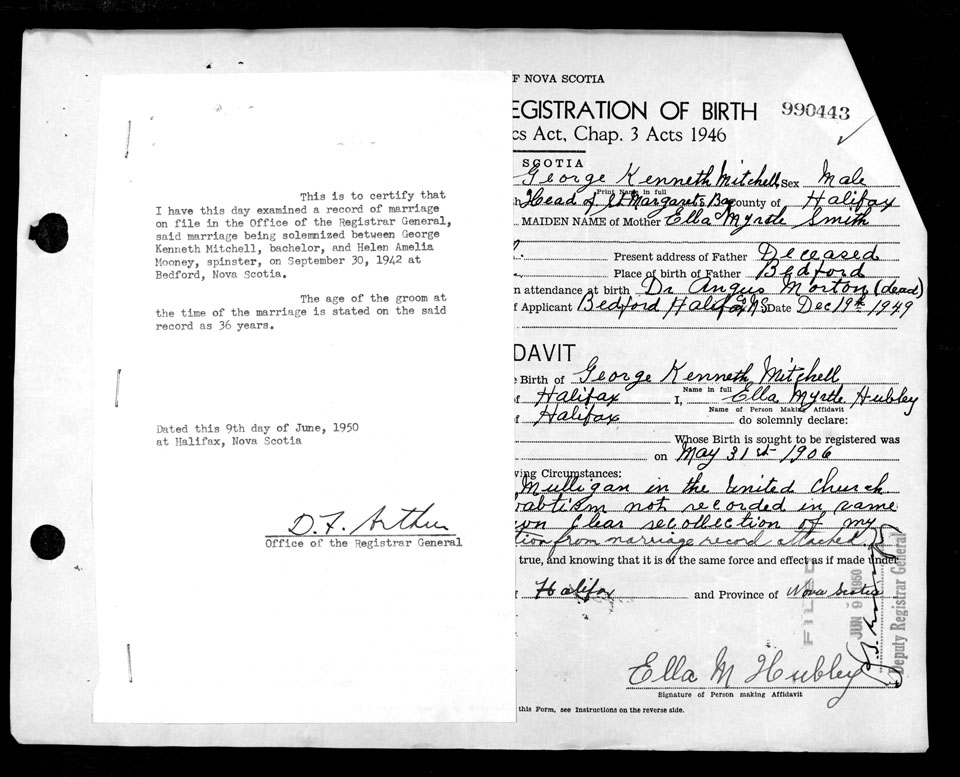 This is to certify that
I have this day examined a record of marriage
on file in the Office of the Registrar General,
said marriage being solemnized between George
Kenneth Mitchell, bachelor, and Helen Amelia
Mooney, spinster, on September 30, 1942 at
Bedford, Nova Scotia.
The age of the groom at
the time of the marriage is stated on the said
record as 36 years.
Dated this 9th day of June, 1950
at Halifax, Nova Scotia
D. F. Arthur
Office of the Registrar General
F NOVA SCOTIA
EGISTRATION OF BIRTH 990443
cs Act, Chap. 3 Acts 1946
SCOTIA
George Kenneth Mitchell Sex Male
Print Name in full
Head of St Margarets Bay County of Halifax
MAIDEN NAME of Mother Ella Myrtle Smith
Present address of Father Deceased
Place of birth of Father Bedford
n attendance at birth Dr Angus Morton (dead)
f Applicant Bedford Halifax Co N.S Date Dec 19th 1949
DAVIT
e Birth of George Kenneth Mitchell
Name in full
Halifax I, Ella Myrtle Hubley
Name of Person Making Affidavit
f Halifax do solemnly declare:
Whose Birth is sought to be registered was
on May 31st 1906
ving Circumstances:
Mulligan in the United Church
babtism not recorded in same
own clear recollection of my
tion from marriage record attached.
true, and knowing that it is of the same force and effect as if made under
Halifax and Province of Nova Scotia
FILED
JUN 9 1950
Deputy Registrar General
Ella M Hubley
Signature of Person making Affidavit
this Form, see Instructions on the reverse side.